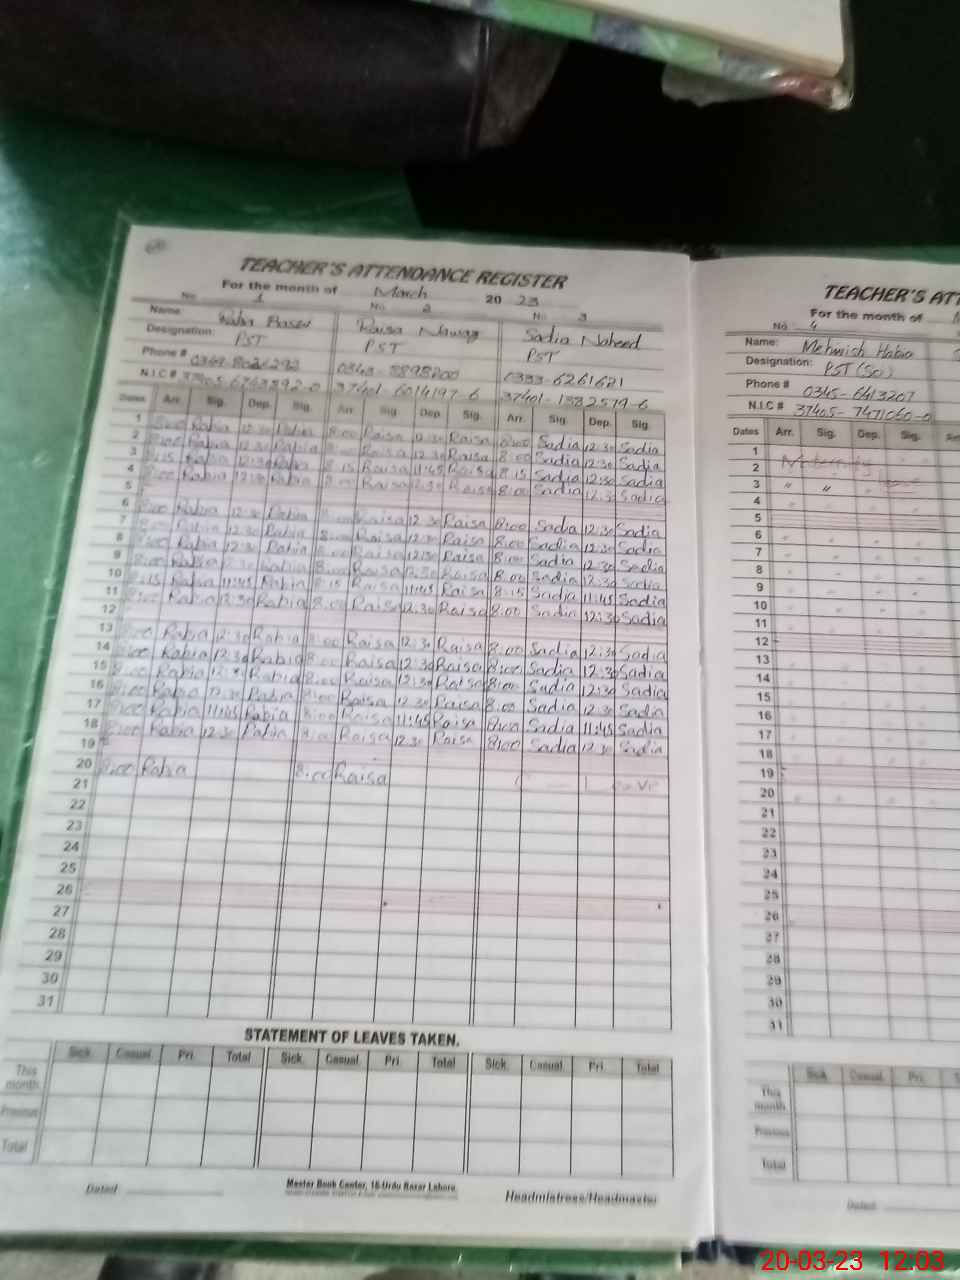 TEACHER'S ATTENDANCE REGISTER
For the month of March 20 23
No 1 No. 2 No. 3
Name: Rabia Raisa Nawaz Sadia Naheed
Designation: PST PST PST
Phone # 0333-6261621
N.I.C # 37401-6014197-6 37401-1382579-6
Dates Arr. Sig. Dep. Sig. Arr. Sig. Dep. Sig. Arr. Sig. Dep. Sig.
1 8:00 Rabia 12:30 Rabia 8:00 Raisa 12:30 Raisa 8:00 Sadia 12:30 Sadia
2 8:00 Rabia 12:30 Rabia 8:00 Raisa 12:30 Raisa 8:00 Sadia 12:30 Sadia
3 8:15 Rabia Rabia 8:15 Raisa 11:45 Raisa 8:15 Sadia 12:30 Sadia
4 8:00 Rabia 12:30 Rabia 8:00 Raisa 12:30 Raisa 8:00 Sadia 12:30 Sadia
5
6 8:00 Rabia 12:30 Rabia Raisa 12:30 Raisa 8:00 Sadia 12:30 Sadia
7 8:00 Rabia 12:30 Rabia 8:00 Raisa 12:30 Raisa 8:00 Sadia 12:30 Sadia
8 8:00 Rabia 12:30 Rabia 8:00 Raisa 12:30 Raisa 8:00 Sadia 12:30 Sadia
9 8:00 Rabia 12:30 Rabia 8:00 Raisa 12:30 Raisa 8:00 Sadia 12:30 Sadia
10 8:15 Rabia 11:45 Rabia 8:15 Raisa 11:45 Raisa 8:15 Sadia 11:45 Sadia
11 8:00 Rabia 12:30 Rabia 8:00 Raisa 12:30 Raisa 8:00 Sadia 12:30 Sadia
12
13 8:00 Rabia 12:30 Rabia 8:00 Raisa 12:30 Raisa 8:00 Sadia 12:30 Sadia
14 8:00 Rabia 12:30 Rabia 8:00 Raisa 12:30 Raisa 8:00 Sadia 12:30 Sadia
15 8:00 Rabia 12:30 Rabia 8:00 Raisa 12:30 Raisa 8:00 Sadia 12:30 Sadia
16 8:00 Rabia 12:30 Rabia 8:00 Raisa 12:30 Raisa 8:00 Sadia 12:30 Sadia
17 8:00 Rabia 11:45 Rabia 8:00 Raisa 11:45 Raisa 8:00 Sadia 11:45 Sadia
18 8:00 Rabia 12:30 Rabia 8:00 Raisa 12:30 Raisa 8:00 Sadia 12:30 Sadia
19
20 8:00 Rabia 8:00 Raisa
21
22
23
24
25
26
27
28
29
30
31
STATEMENT OF LEAVES TAKEN.
Sick. Casual. Pri. Total Sick. Casual. Pri. Total Sick. Casual. Pri. Total
This month.
Previous
Total
Dated
Master Book Center, 18-Urdu Bazar Lahore.
Headmistress/Headmaster
TEACHER'S ATT
For the month of M
No 4
Name: Mehwish Habia
Designation: PST (SO)
Phone # 0345-6413207
N.I.C # 37405-7471060-0
Dates Arr. Sig. Dep. Sig.
1
2 Maternity leave
3 " " "
4
5
6
7
8
9
10
11
12
13
14
15
16
17
18
19
20
21
22
23
24
25
26
27
28
29
30
31
Sick. Casual. Pri. T
This month.
Previous
Total
Dated
20-03-23 12:03